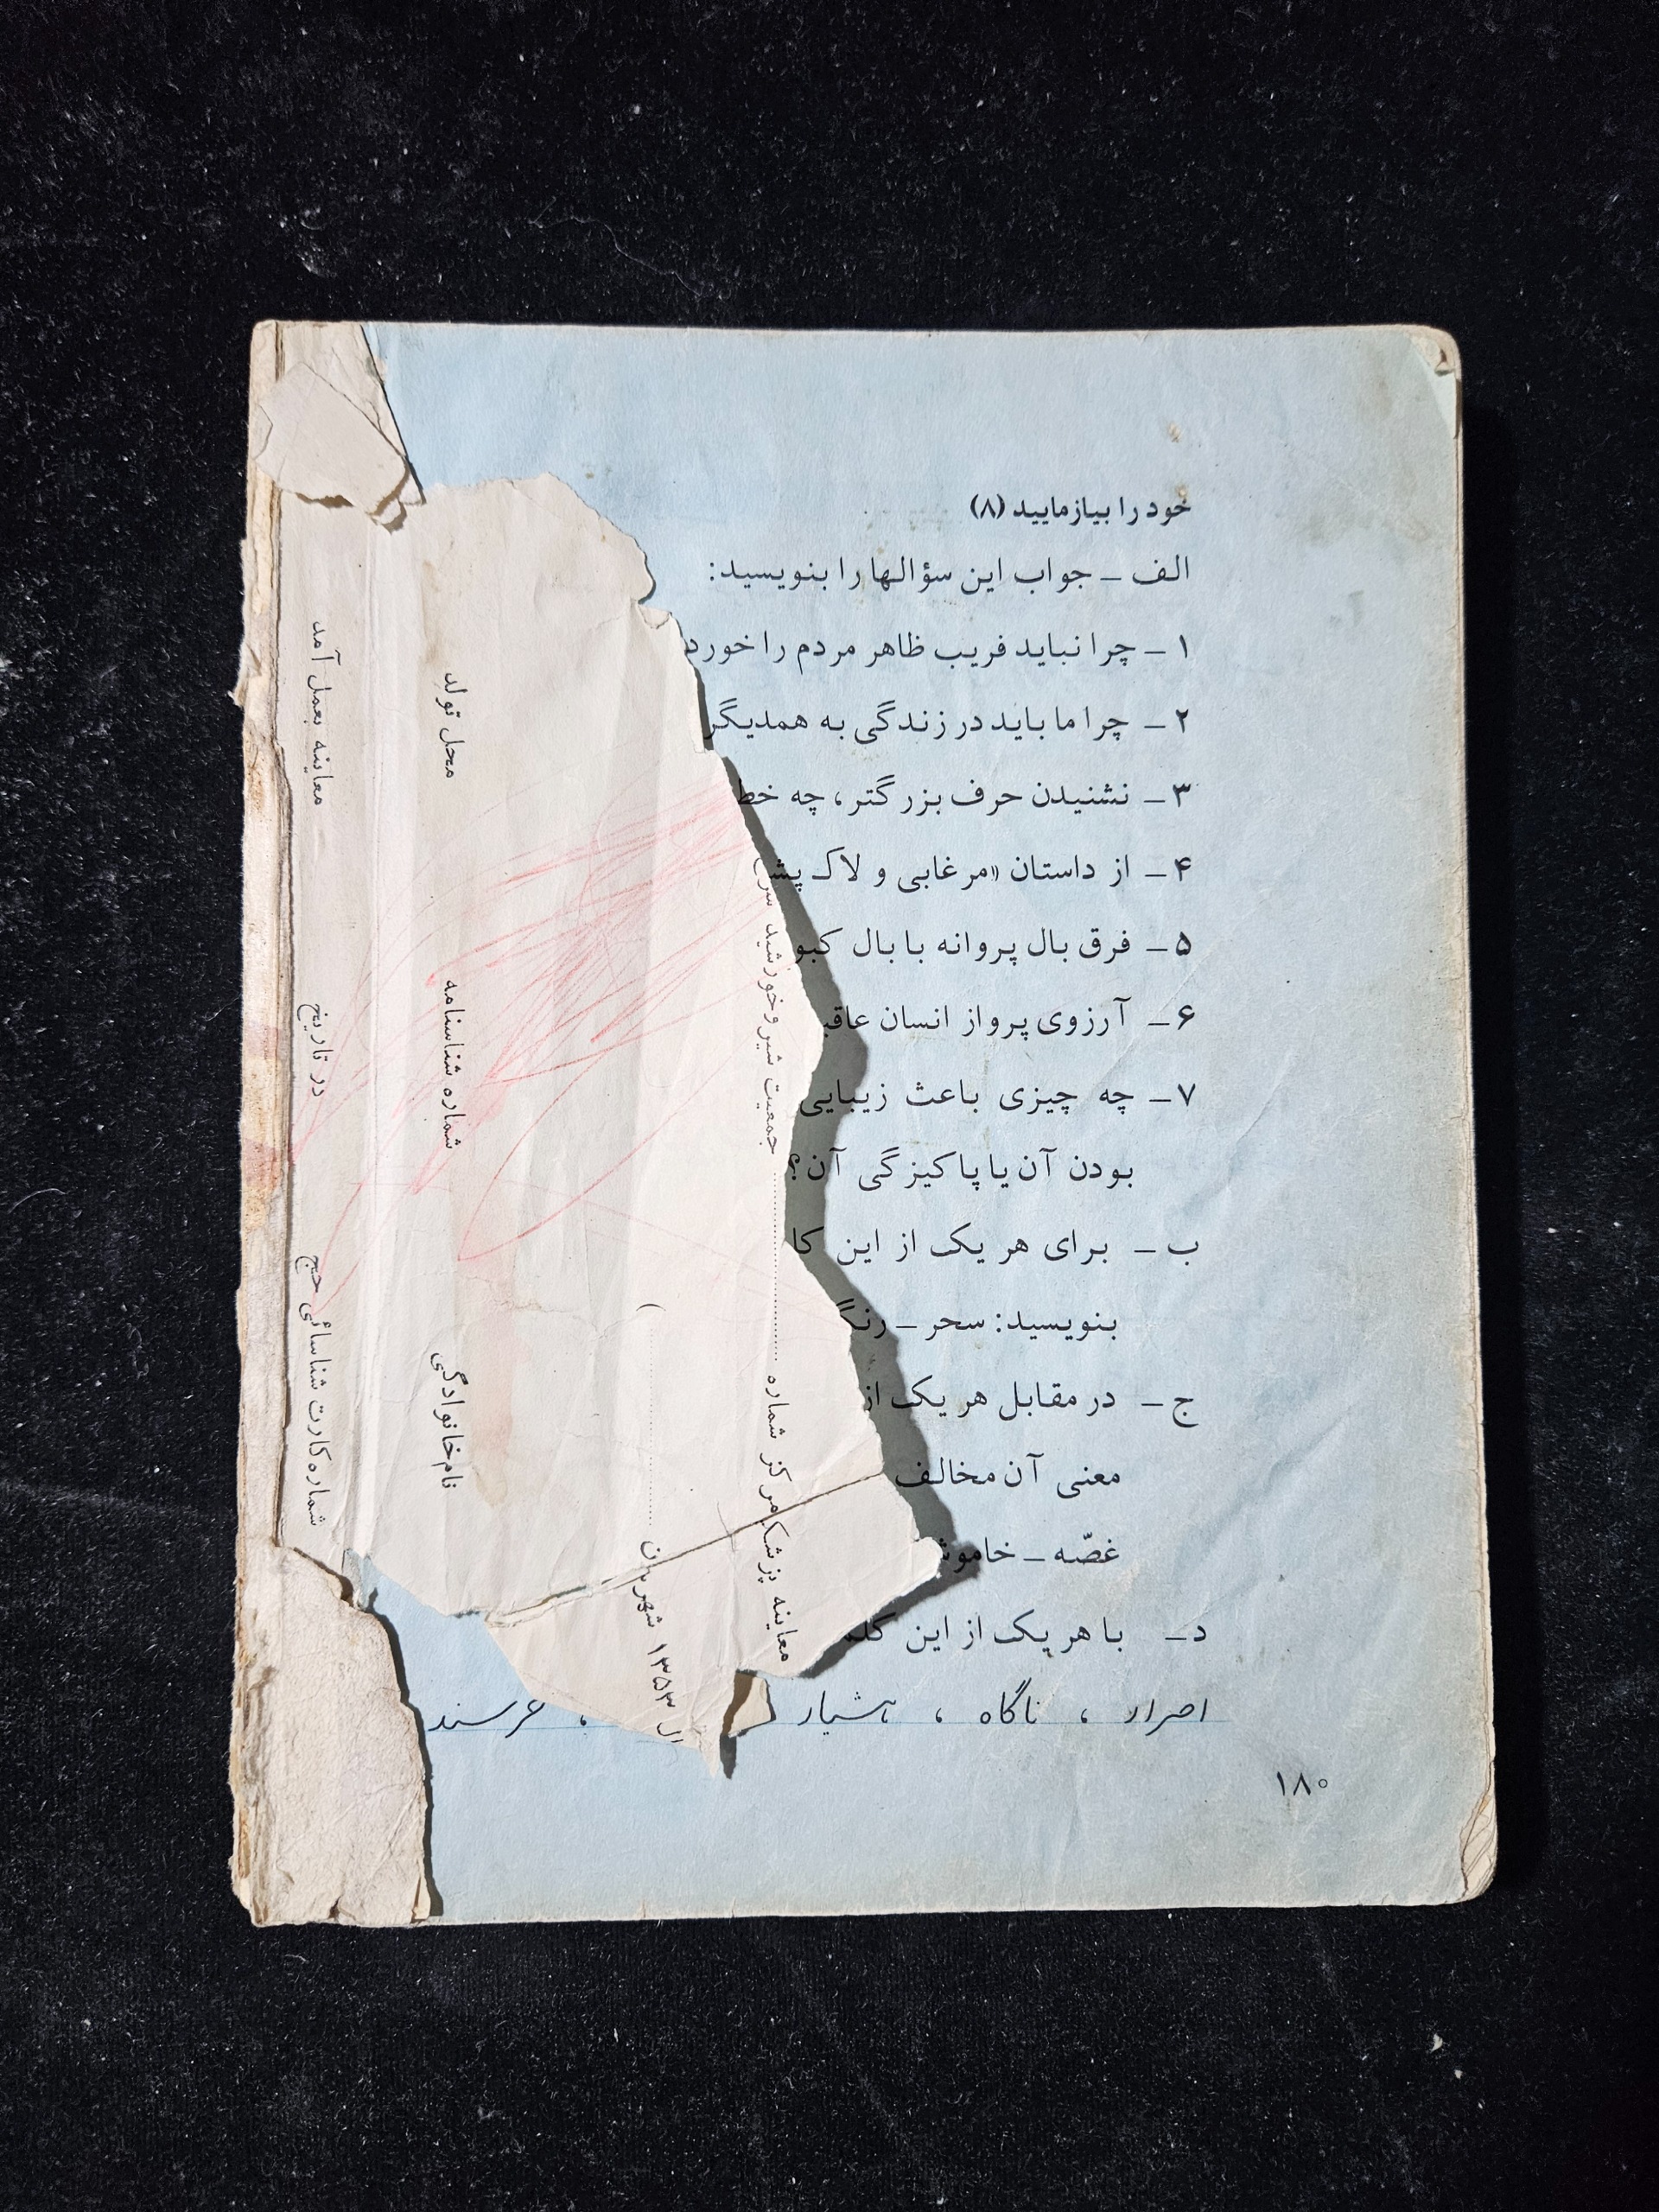 خود را بیازمایید (۸)
الف ـ جواب این سؤالها را بنویسید:
۱ ـ چرا نباید فریب ظاهر مردم را خورد
۲ ـ چرا ما باید در زندگی به همدیگر
۳ ـ نشنیدن حرف بزرگتر، چه
۴ ـ از داستان «مرغابی و لاک
۵ ـ فرق بال پروانه با بال
۶ ـ آرزوی پرواز انسان
۷ ـ چه چیزی باعث زیبایی
بودن آن یا پاکیزگی آن؟
ب ـ برای هر یک از این
بنویسید: سحر ـ
ج ـ در مقابل هر یک از
معنی آن مخالف
غصّه ـ
د ـ با هر یک از این
اصرار ، ناگاه ، هشیار ، خرسند
۱۸۰
معاینه پزشکی مرکز شماره .......... جمعیت شیر و خورشید سرخ
۱۳۵۳ شهریان .......... )
نام خانوادگی شماره شناسنامه محل تولد
شماره کارت شناسائی حج در تاریخ معاینه بعمل آمد